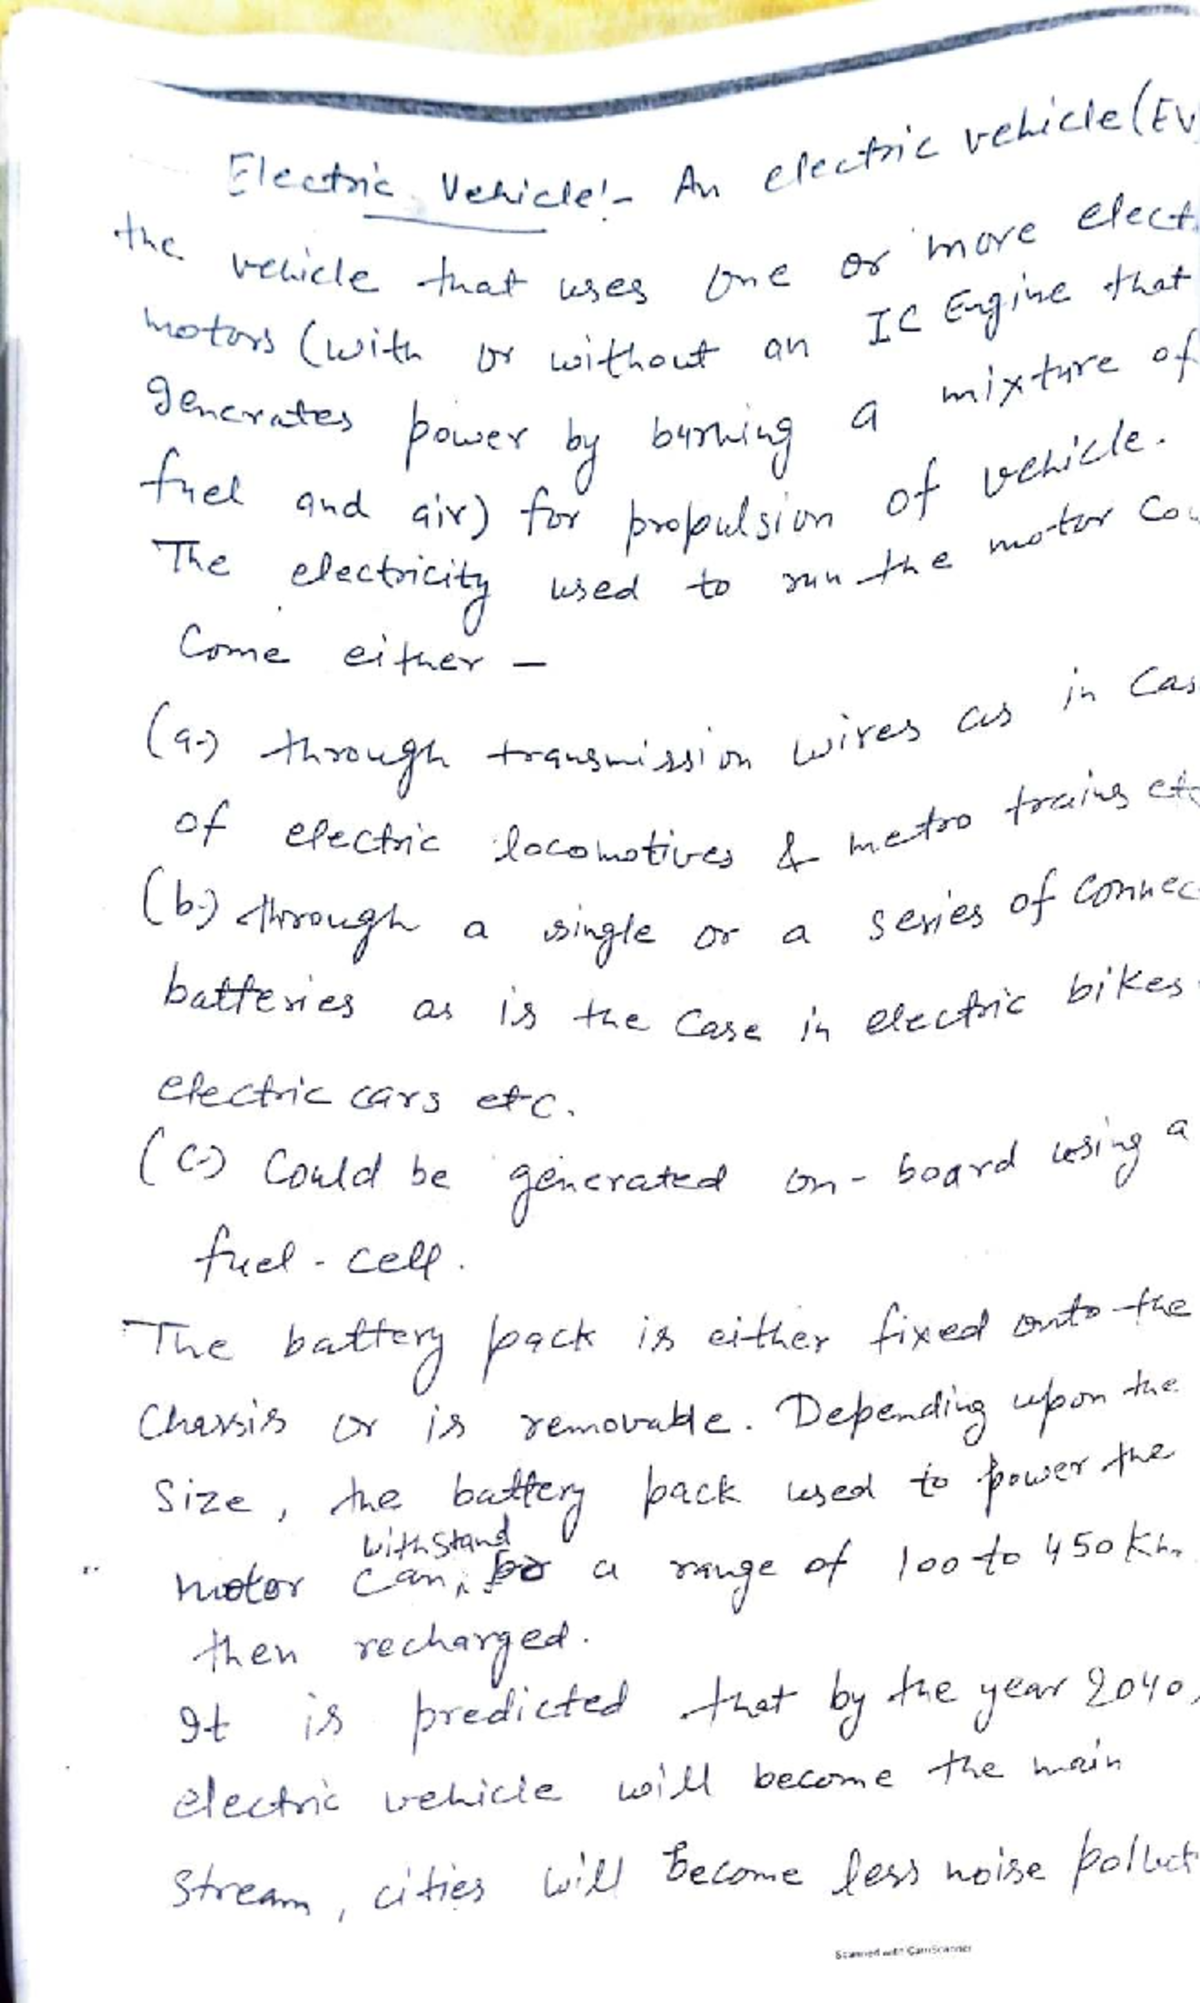 Electric Vehicle:- An electric vehicle (EV
the vehicle that uses one or more elect
motors (with or without an IC Engine that
generates power by burning a mixture of
fuel and air) for propulsion of vehicle.
The electricity used to run the motor Cou
Come either -
(a.) through transmission wires as in Cas
of electric locomotives & metro trains etc
(b.) through a single or a series of Connec
batteries as is the Case in electric bikes
electric cars etc.
(c.) Could be generated on-board using a
fuel-cell.
The battery pack is either fixed onto the
Chassis or is removable. Depending upon the
Size, the battery pack used to power the
withstand
motor can a range of 100 to 450 Km
then recharged.
It is predicted that by the year 2040,
electric vehicle will become the main
stream, cities will become less noise pollut
Scanned with CamScanner